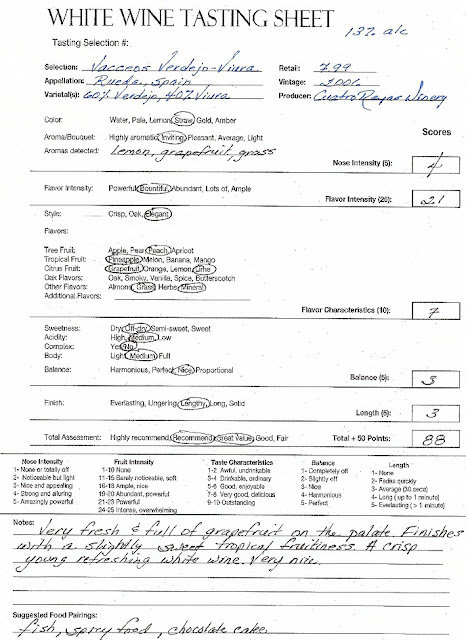 WHITE WINE TASTING SHEET
13% alc
Tasting Selection #:
Selection: Vacceos Verdejo-Viura Retail: 7.99
Appellation: Rueda, Spain Vintage: 2006
Varietal(s): 60% Verdejo, 40% Viura Producer: Cuatro Rayas Winery
Color: Water, Pale, Lemon, Straw, Gold, Amber
Scores
Aroma/Bouquet: Highly aromatic, Inviting, Pleasant, Average, Light
Aromas detected: Lemon, grapefruit, grass
Nose Intensity (5): 4
Flavor Intensity: Powerful, Bountiful, Abundant, Lots of, Ample
Flavor Intensity (25): 21
Style: Crisp, Oak, Elegant
Flavors:
Tree Fruit: Apple, Pear, Peach, Apricot
Tropical Fruit: Pineapple, Melon, Banana, Mango
Citrus Fruit: Grapefruit, Orange, Lemon, Lime
Oak Flavors: Oak, Smoky, Vanilla, Spice, Butterscotch
Other Flavors: Almond, Grass, Herbs, Mineral
Additional Flavors:
Flavor Characteristics (10): 7
Sweetness: Dry, Off-dry, Semi-sweet, Sweet
Acidity: High, Medium, Low
Complex: Yes, No
Body: Light, Medium, Full
Balance: Harmonious, Perfect, Nice, Proportional
Balance (5): 3
Finish: Everlasting, Lingering, Lengthy, Long, Solid
Length (5): 3
Total Assessment: Highly recommend, Recommend, Great value, Good, Fair Total + 50 Points: 88
Nose Intensity Fruit Intensity Taste Characteristics Balance Length
1- None or totally off 1-10 None 1-2 Awful, undrinkable 1- Completely off 1- None
2- Noticeable but light 11-15 Barely noticeable, soft 3-4 Drinkable, ordinary 2- Slightly off 2- Fades quickly
3- Nice and appealing 16-18 Ample, nice 5-6 Good, enjoyable 3- Nice 3- Average (30 secs)
4- Strong and alluring 19-20 Abundant, powerful 7-8 Very good, delicious 4- Harmonious 4- Long (up to 1 minute)
5- Amazingly powerful 21-23 Powerful 9-10 Outstanding 5- Perfect 5- Everlasting (> 1 minute)
24-25 Intense, overwhelming
Notes: Very fresh & full of grapefruit on the palate. Finishes
with a slightly sweet tropical fruitiness. A crisp
young refreshing white wine. Very nice.
Suggested Food Pairings:
fish, spicy food, chocolate cake